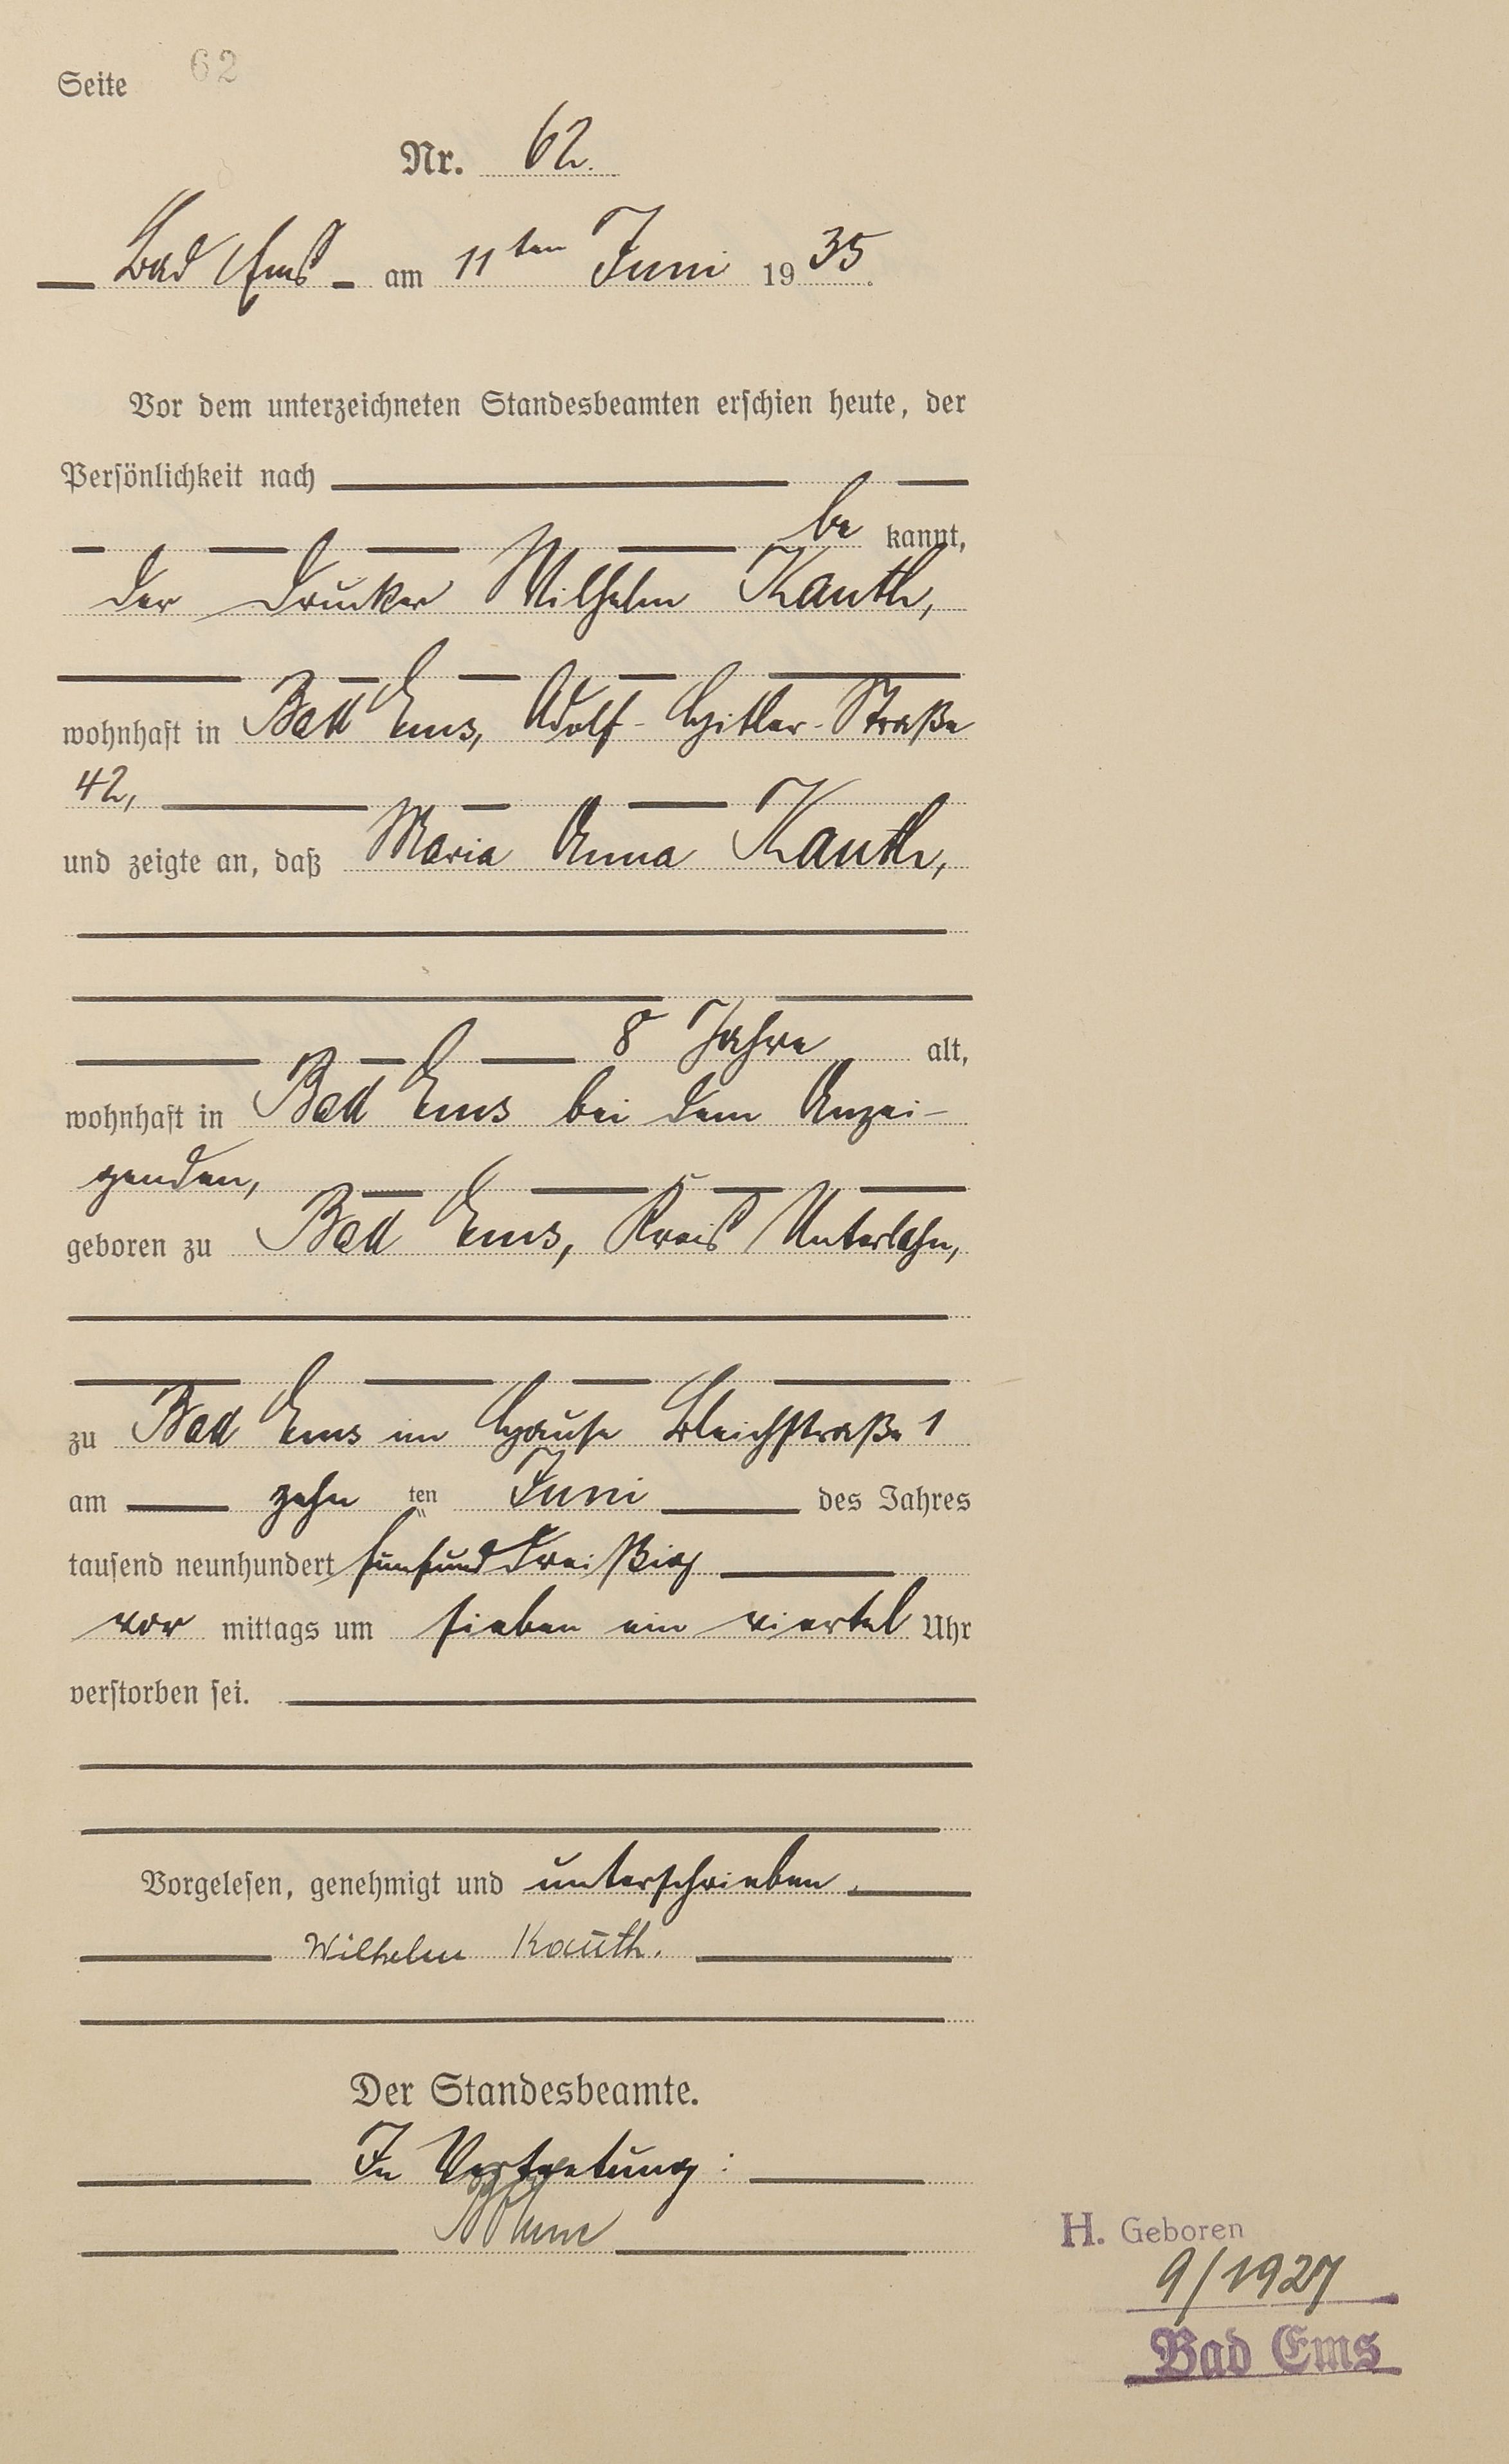 Seite 62
Nr. 62.
Bad Ems am 11ten Juni 1935.
Vor dem unterzeichneten Standesbeamten erschien heute, der
Persönlichkeit nach
be kannt,
der Drucker Wilhelm Kauth,
wohnhaft in Bad Ems, Adolf-Hitler-Straße
42,
und zeigte an, daß Maria Anna Kauth,
8 Jahre alt,
wohnhaft in Bad Ems bei dem Anzei-
genden,
geboren zu Bad Ems, Kreis Unterlahn,
zu Bad Ems im Hause Bleichstraße 1
am zehn ten Juni des Jahres
tausend neunhundert fünfunddreißig
vor mittags um sieben ein viertel Uhr
verstorben sei.
Vorgelesen, genehmigt und unterschrieben.
Wilhelm Kauth.
Der Standesbeamte.
In Vertretung:
H. Geboren
9/1927
Bad Ems